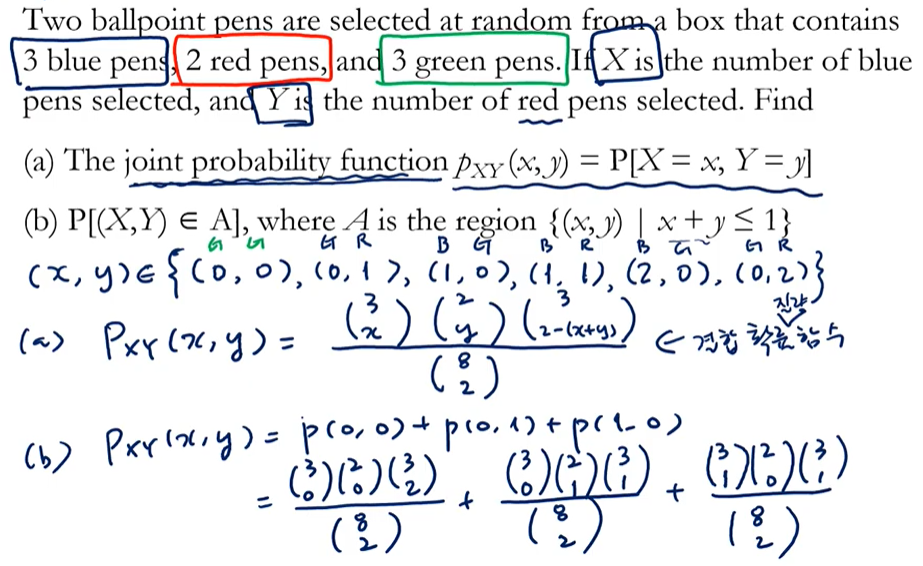 Two ballpoint pens are selected at random from a box that contains
3 blue pens, 2 red pens, and 3 green pens. If X is the number of blue
pens selected, and Y is the number of red pens selected. Find
(a) The joint probability function p_XY(x, y) = P[X = x, Y = y]
(b) P[(X,Y) ∈ A], where A is the region {(x, y) | x + y ≤ 1}
G G G R B G B R B G G R
(x, y) ∈ {(0, 0), (0, 1), (1, 0), (1, 1), (2, 0), (0, 2)}
질량
(a) P_XY(x, y) = (3 x)(2 y)(3 2-(x+y)) / (8 2) ← 결합 확률 함수
(b) P_XY(x, y) = p(0, 0) + p(0, 1) + p(1, 0)
= (3 0)(2 0)(3 2) / (8 2) + (3 0)(2 1)(3 1) / (8 2) + (3 1)(2 0)(3 1) / (8 2)